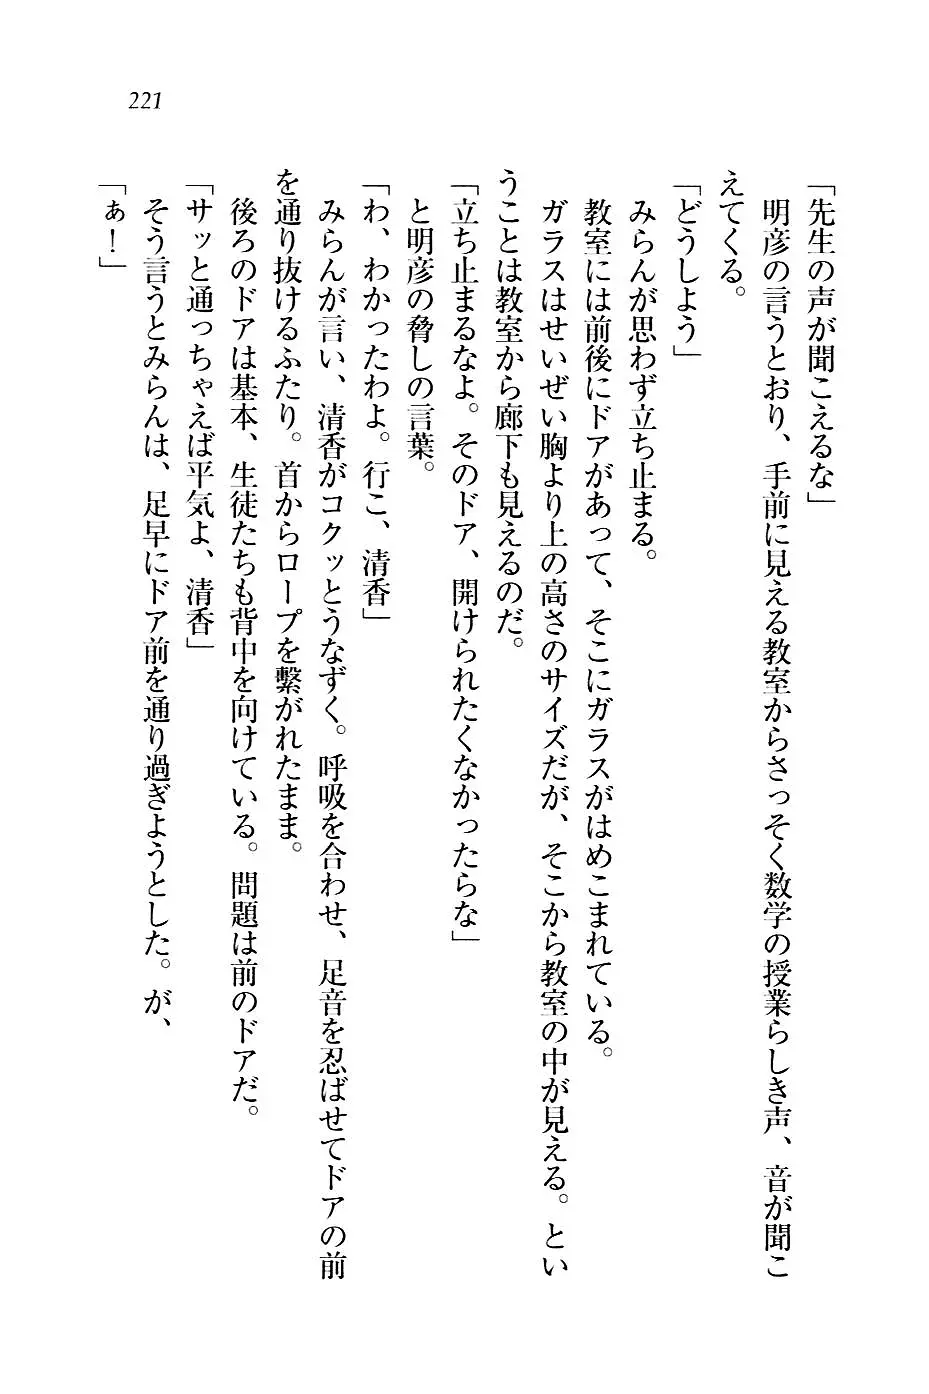 221
「先生の声が聞こえるな」
明彦の言うとおり、手前に見える教室からさっそく数学の授業らしき声、音が聞こ
えてくる。
「どうしよう」
みらんが思わず立ち止まる。
教室には前後にドアがあって、そこにガラスがはめこまれている。
ガラスはせいぜい胸より上の高さのサイズだが、そこから教室の中が見える。とい
うことは教室から廊下も見えるのだ。
「立ち止まるなよ。そのドア、開けられたくなかったらな」
と明彦の脅しの言葉。
「わ、わかったわよ。行こ、清香」
みらんが言い、清香がコクッとうなずく。呼吸を合わせ、足音を忍ばせてドアの前
を通り抜けるふたり。首からロープを繋がれたまま。
後ろのドアは基本、生徒たちも背中を向けている。問題は前のドアだ。
「サッと通っちゃえば平気よ、清香」
そう言うとみらんは、足早にドア前を通り過ぎようとした。が、
「ぁ！」